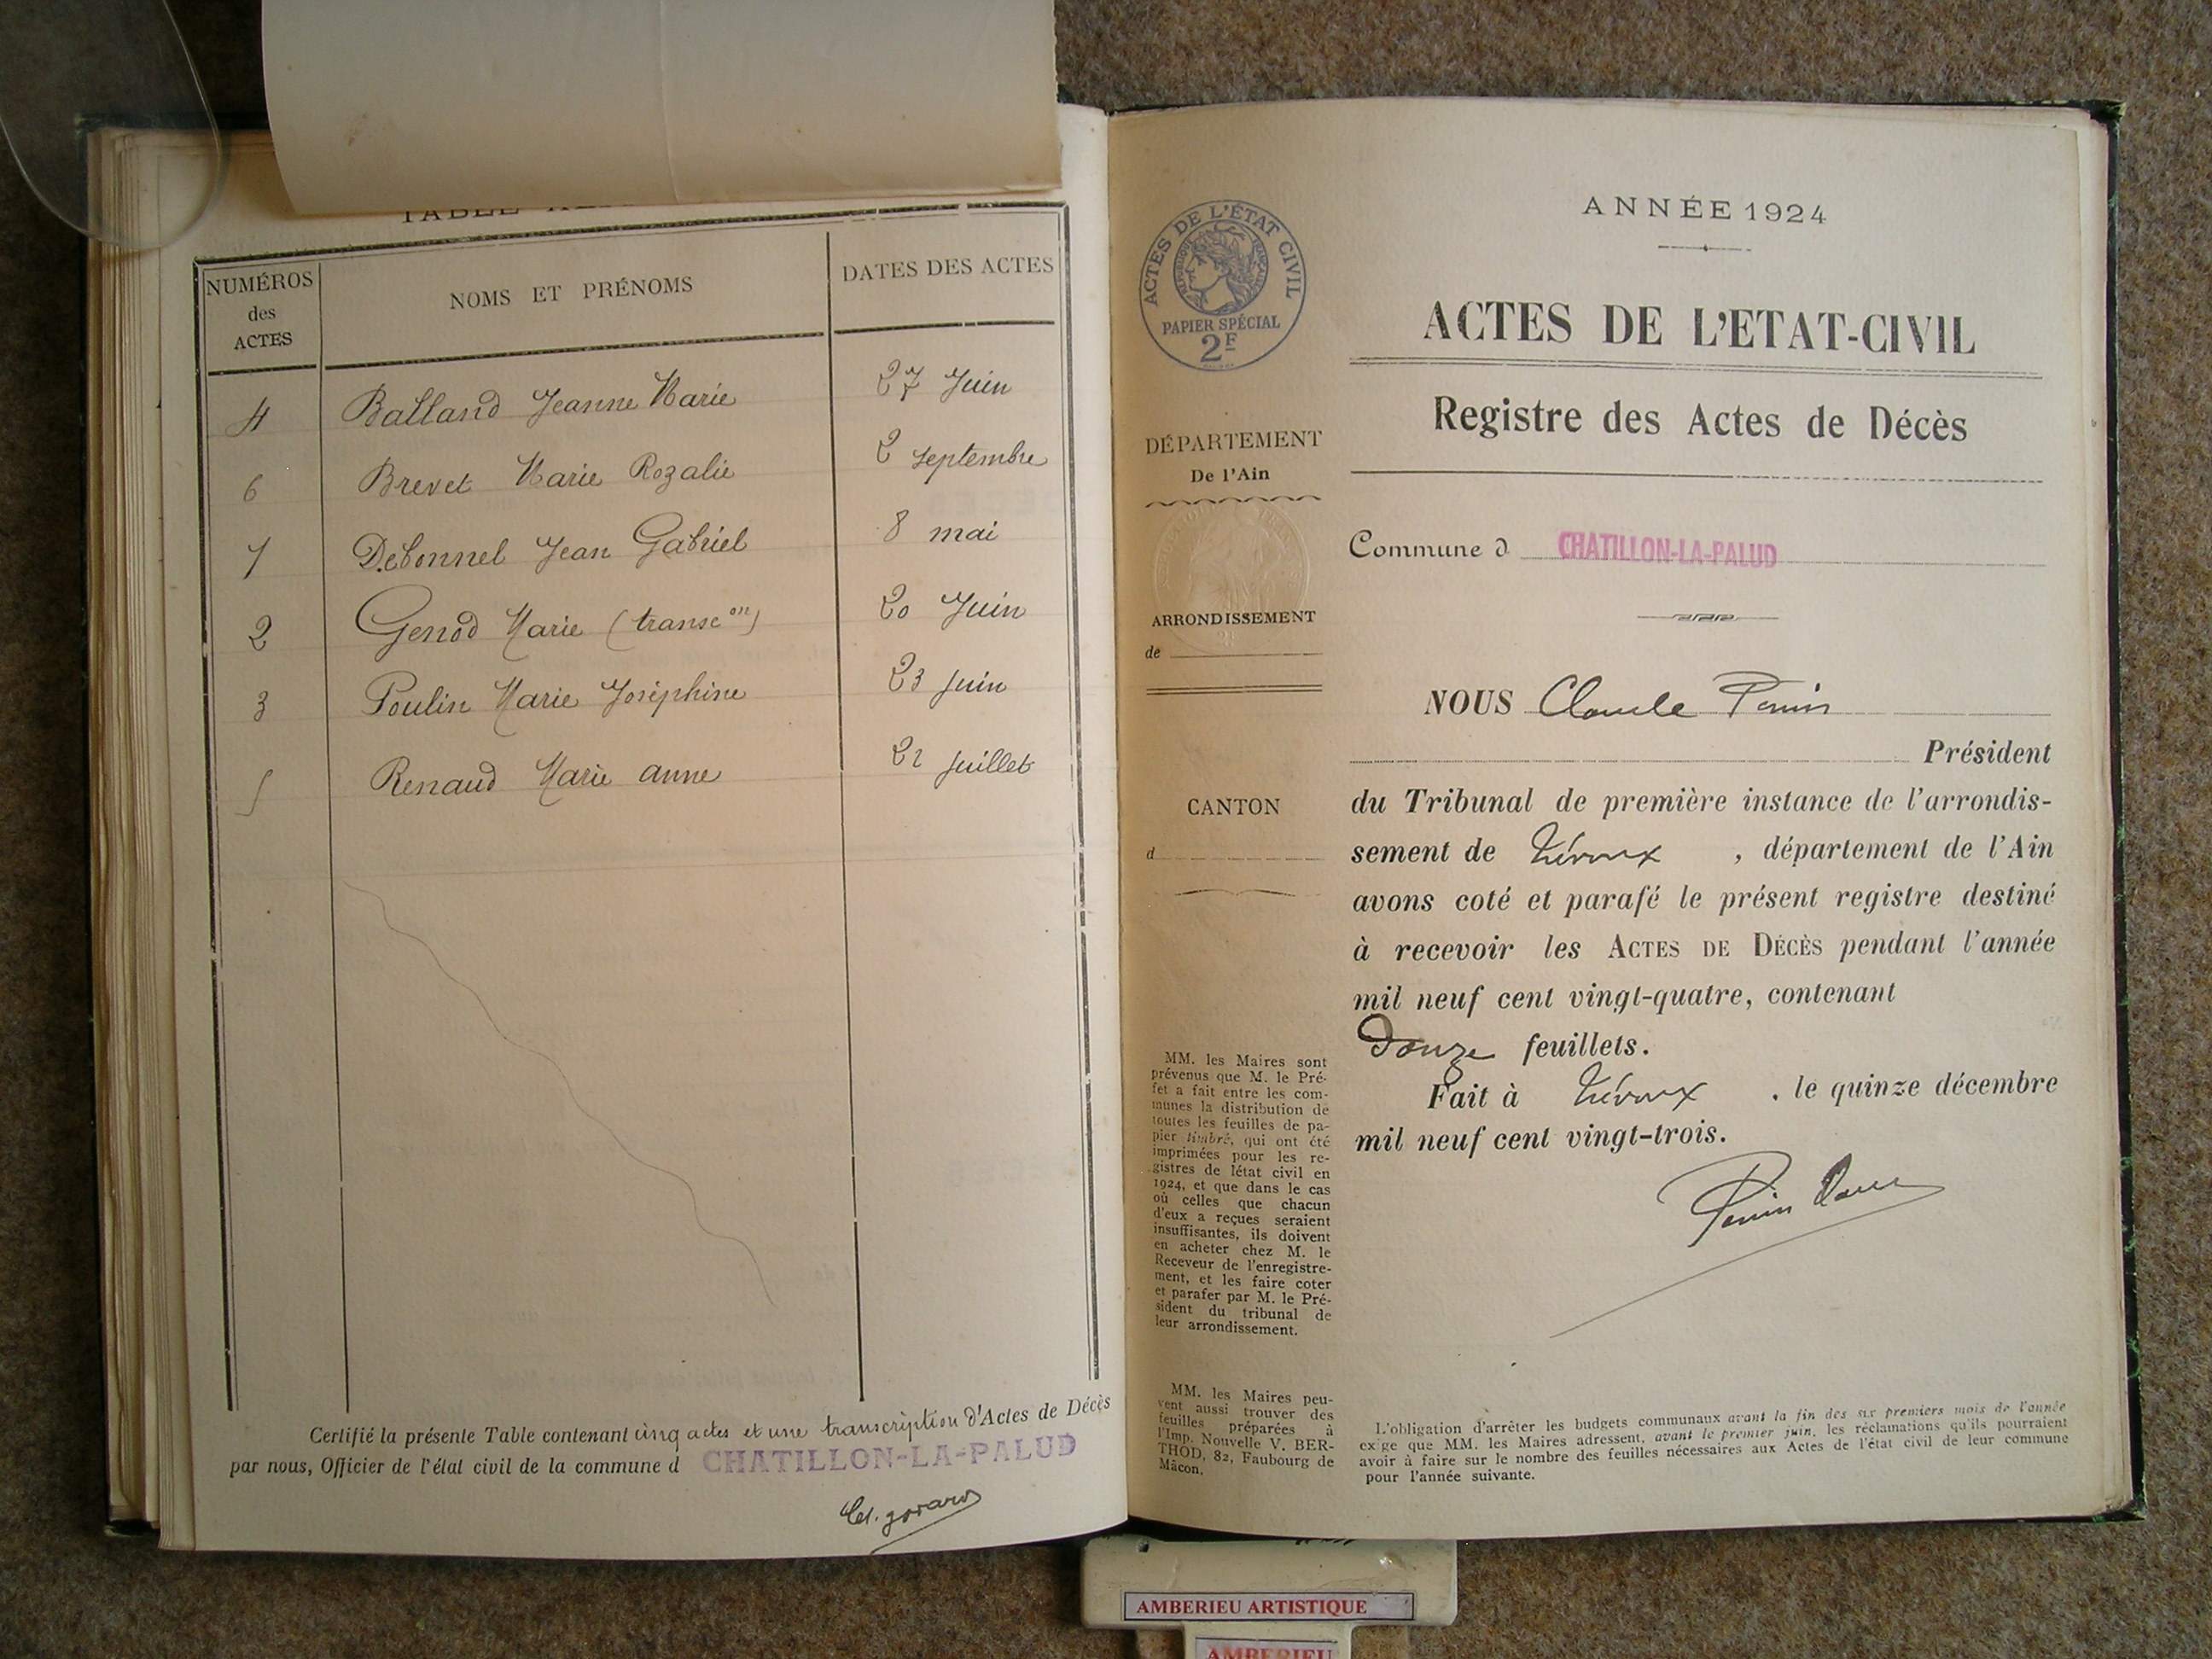 NUMÉROS des ACTES | NOMS ET PRÉNOMS | DATES DES ACTES
4 Balland Jeanne Marie 27 Juin
6 Brevet Marie Rozalie 2 septembre
1 Debonnel Jean Gabriel 8 mai
2 Genod Marie (transc.on) 20 Juin
3 Poulin Marie Joséphine 23 juin
5 Renaud Marie anne 22 juillet
Certifié la présente Table contenant cinq actes et une transcription d'Actes de Décès
par nous, Officier de l'état civil de la commune d CHATILLON-LA-PALUD
ANNÉE 1924
ACTES DE L'ÉTAT CIVIL
RÉPUBLIQUE FRANÇAISE
PAPIER SPÉCIAL
2F
ACTES DE L'ETAT-CIVIL
Registre des Actes de Décès
DÉPARTEMENT
De l'Ain
Commune d CHATILLON-LA-PALUD
ARRONDISSEMENT
de
NOUS Claude Perrin
Président
CANTON
d
du Tribunal de première instance de l'arrondis-
sement de Trévoux , département de l'Ain
avons coté et parafé le présent registre destiné
à recevoir les ACTES DE DÉCÈS pendant l'année
mil neuf cent vingt-quatre, contenant
Douze feuillets.
Fait à Trévoux , le quinze décembre
mil neuf cent vingt-trois.
MM. les Maires sont
prévenus que M. le Pré-
fet a fait entre les com-
munes la distribution de
toutes les feuilles de pa-
pier timbré, qui ont été
imprimées pour les re-
gistres de létat civil en
1924, et que dans le cas
où celles que chacun
d'eux a reçues seraient
insuffisantes, ils doivent
en acheter chez M. le
Receveur de l'enregistre-
ment, et les faire coter
et parafer par M. le Pré-
sident du tribunal de
leur arrondissement.
MM. les Maires peu-
vent aussi trouver des
feuilles préparées à
l'Imp. Nouvelle V. BER-
THOD, 82, Faubourg de
Mâcon.
L'obligation d'arrêter les budgets communaux avant la fin des six premiers mois de l'année
exige que MM. les Maires adressent, avant le premier juin, les réclamations qu'ils pourraient
avoir à faire sur le nombre des feuilles nécessaires aux Actes de l'état civil de leur commune
pour l'année suivante.
AMBERIEU ARTISTIQUE
AMBERIEU